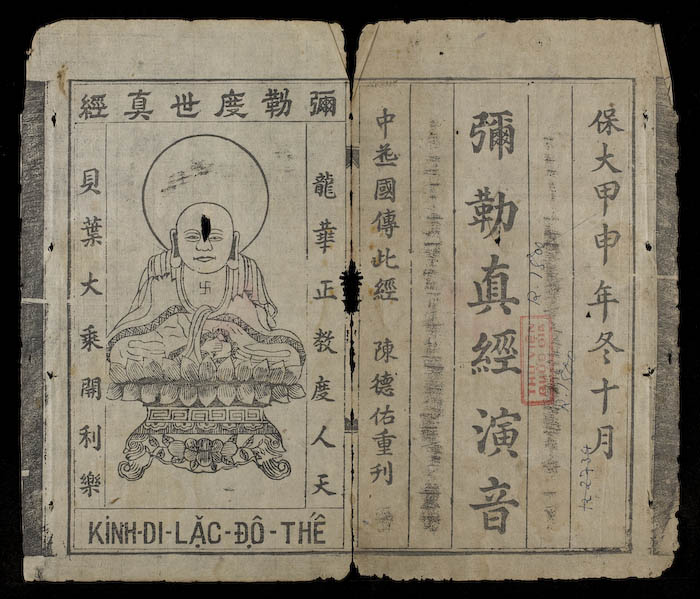 保大甲申年冬十月
彌勒真經演音
中 國傳此經 陳德佑重刊
THƯ VIỆN
QUỐC GIA
彌勒度世真經
龍華正教度人天
卍
貝葉大乘開利樂
KiNH-DI-LẶC-ĐỘ-THẾ